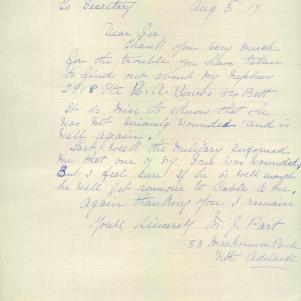 To Secretary Aug 5 17
Dear Sir
Thank you very much
for the trouble you have taken
to find out about my nephew
Pte A
It is nice to know that he
was not seriously wounded and is
well again.
Last week the Military informed
me that one of my Sons was wounded,
But I feel sure if he is well enough
he will get someone to Cable to me.
Again thanking you I remain
Yours Sincerely M. J. Part
83 Mackinnon Parde
Nth Adelaide